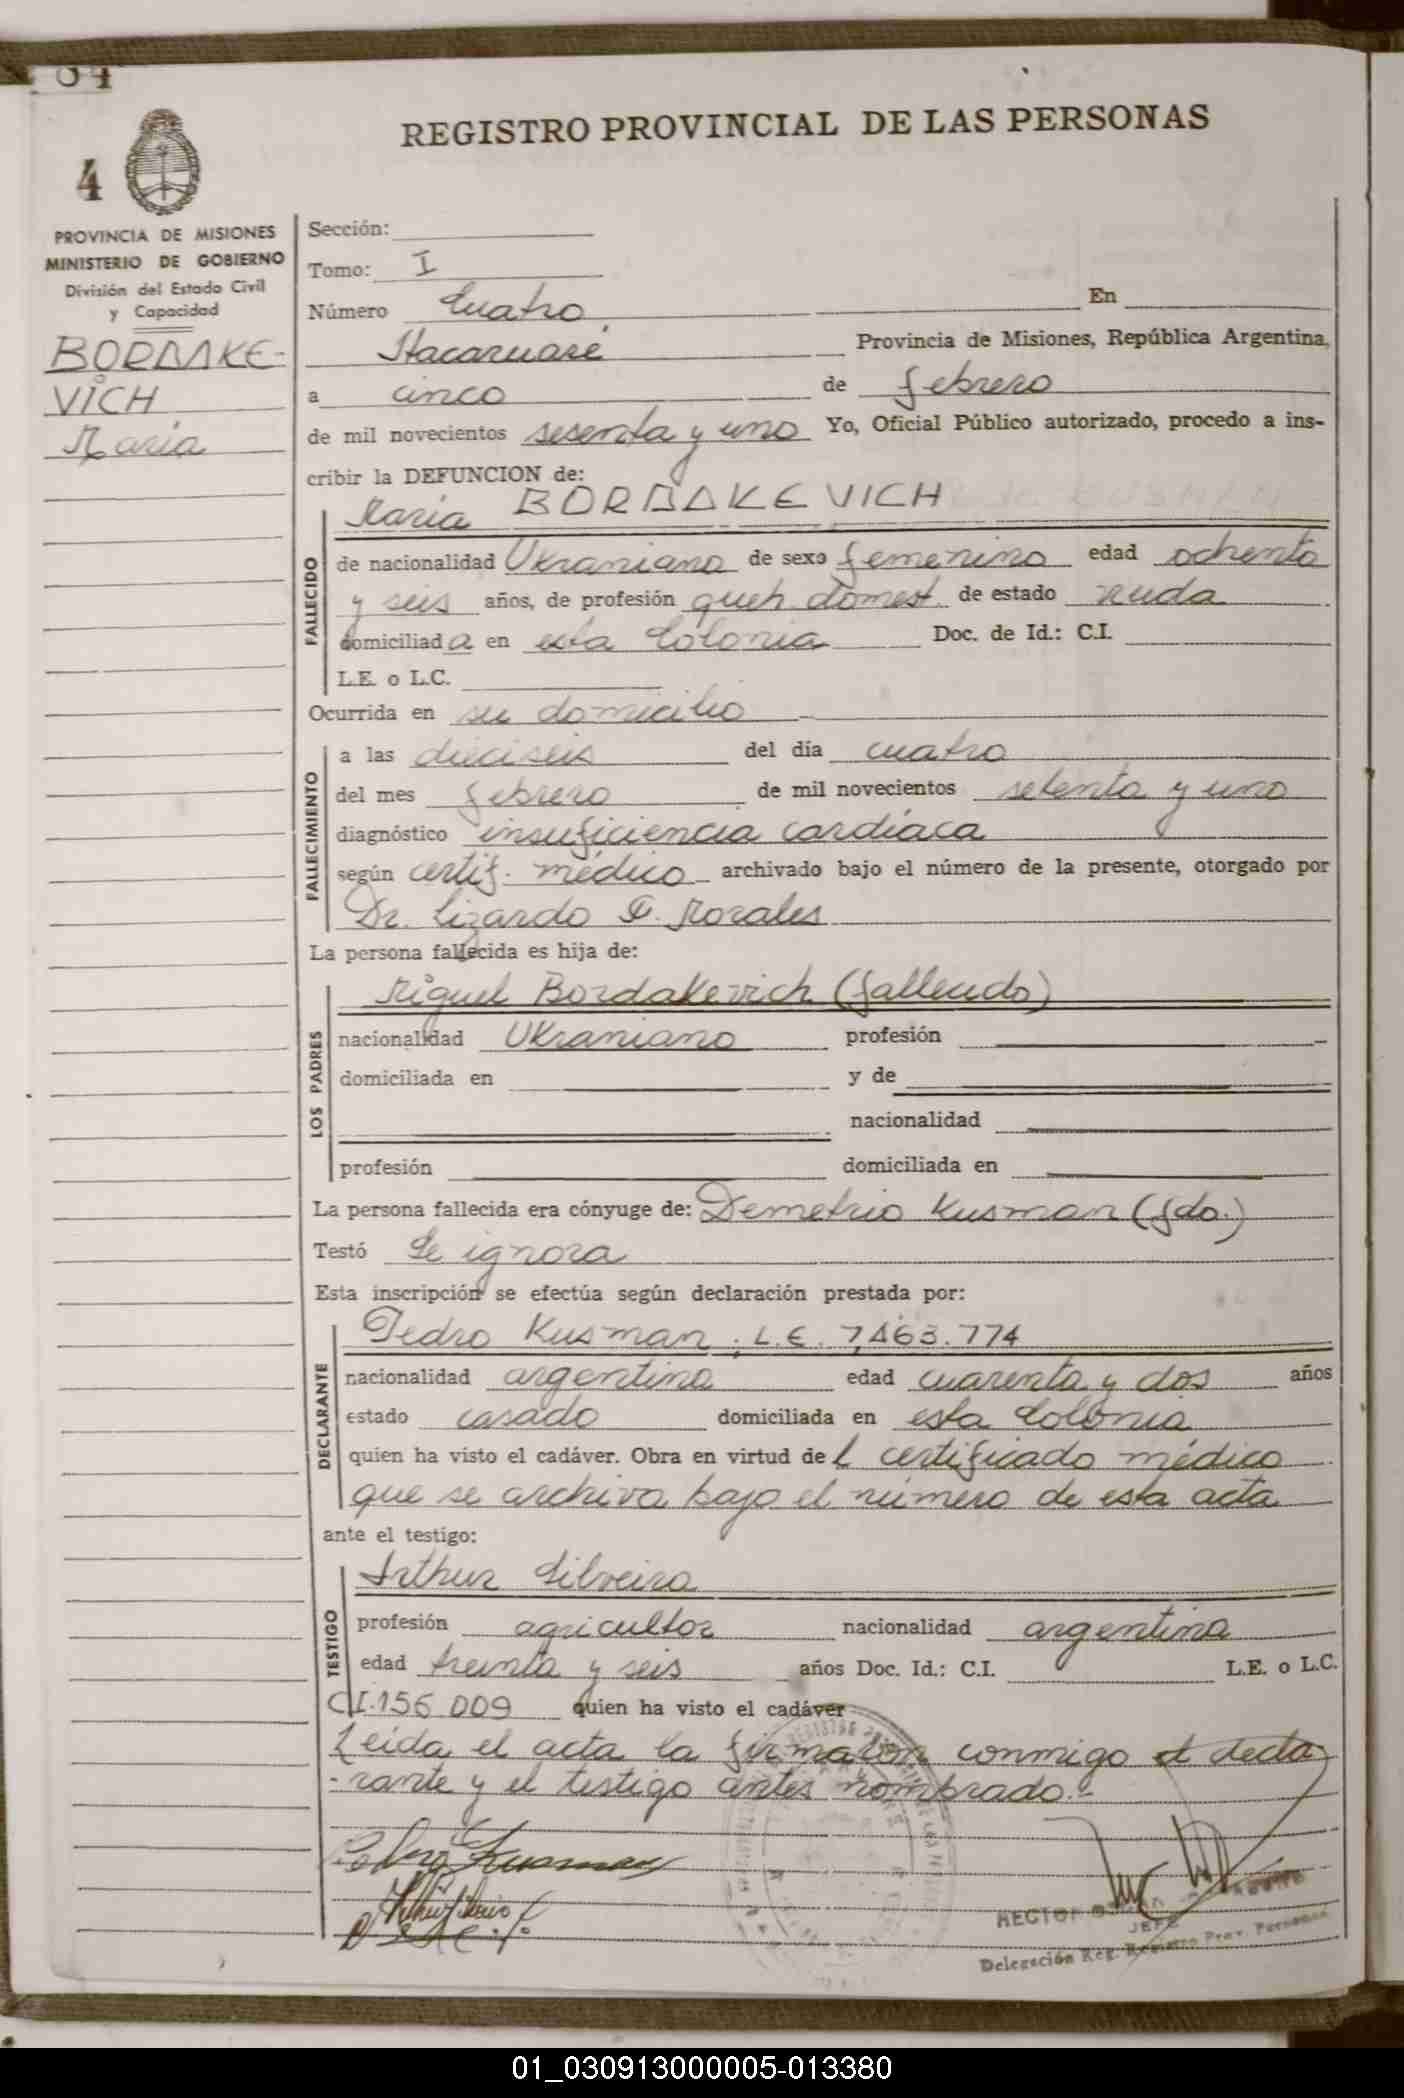 04
REGISTRO PROVINCIAL DE LAS PERSONAS
4
PROVINCIA DE MISIONES
MINISTERIO DE GOBIERNO
División del Estado Civil
y Capacidad
BORDAKE-
VICH
Maria
Sección:
Tomo: I
Número Cuatro En
Itacaruaré Provincia de Misiones, República Argentina,
a cinco de febrero
de mil novecientos sesenta y uno Yo, Oficial Público autorizado, procedo a ins-
cribir la DEFUNCION de:
Maria BORDAKEVICH
FALLECIDO
de nacionalidad Ukraniana de sexo femenino edad ochenta
y seis años, de profesión queh. domest. de estado viuda
domiciliada en esta Colonia Doc. de Id.: C.I.
L.E. o L.C.
Ocurrida en su domicilio
FALLECIMIENTO
a las dieciseis del día cuatro
del mes febrero de mil novecientos setenta y uno
diagnóstico insuficiencia cardíaca
según certif. médico archivado bajo el número de la presente, otorgado por
Dr. Lizardo F. Morales
La persona fallecida es hija de:
LOS PADRES
Miguel Bordakevich (fallecido)
nacionalidad Ukraniano profesión
domiciliada en y de
nacionalidad
profesión domiciliada en
La persona fallecida era cónyuge de: Demetrio Kusman (fdo.)
Testó Se ignora
Esta inscripción se efectúa según declaración prestada por:
DECLARANTE
Pedro Kusman, L.E. 7,463.774
nacionalidad argentina edad cuarenta y dos años
estado casado domiciliada en esta Colonia
quien ha visto el cadáver. Obra en virtud del certificado médico
que se archiva bajo el número de esta acta
ante el testigo:
TESTIGO
Arthur Silveira
profesión agricultor nacionalidad argentina
edad treinta y seis años Doc. Id.: C.I. L.E. o L.C.
C.I. 156 009 quien ha visto el cadáver
Leida el acta la firmaron conmigo el decla
-rante y el testigo antes nombrado.-
Pedro Kusman
HECTOR
JEFE
Delegación Reg. Registro Prov. Personas
01_030913000005-013380